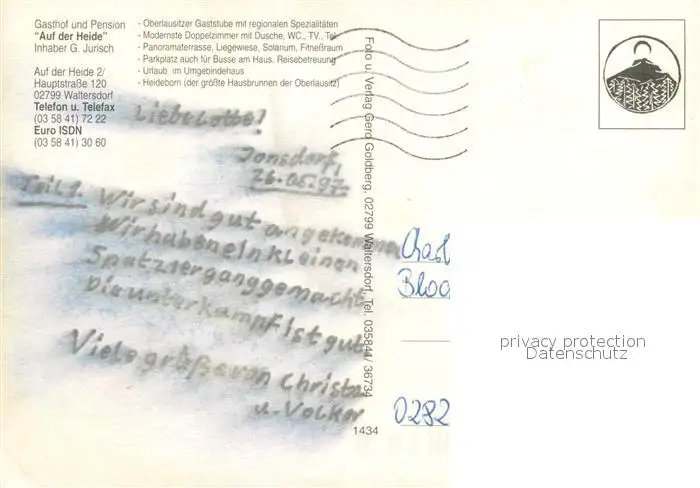 Gasthof und Pension
"Auf der Heide"
Inhaber G. Jurisch
Auf der Heide 2/
Hauptstraße 120
02799 Waltersdorf
Telefon u. Telefax
(03 58 41) 72 22
Euro ISDN
(03 58 41) 30 60
- Oberlausitzer Gaststube mit regionalen Spezialitäten
- Modernste Doppelzimmer mit Dusche, WC, TV, Tel.
- Panoramaterrasse, Liegewiese, Solarium, Fitneßraum
- Parkplatz auch für Busse am Haus. Reisebetreuung
- Urlaub im Umgebindehaus
- Heideborn (der größte Hausbrunnen der Oberlausitz)
Liebe Lotte!
Jonsdorf,
26.05.97
Teil 1. Wir sind gut angekommen
Wir haben ein kleinen
Spatziergang gemacht
Die unterkampf ist gut
Viele größe von Christa
u. Volker
Foto u. Verlag Gerd Goldberg, 02799 Waltersdorf, Tel. 035844 / 36734
1434
Charl
Bloc
0282
privacy protection
Datenschutz